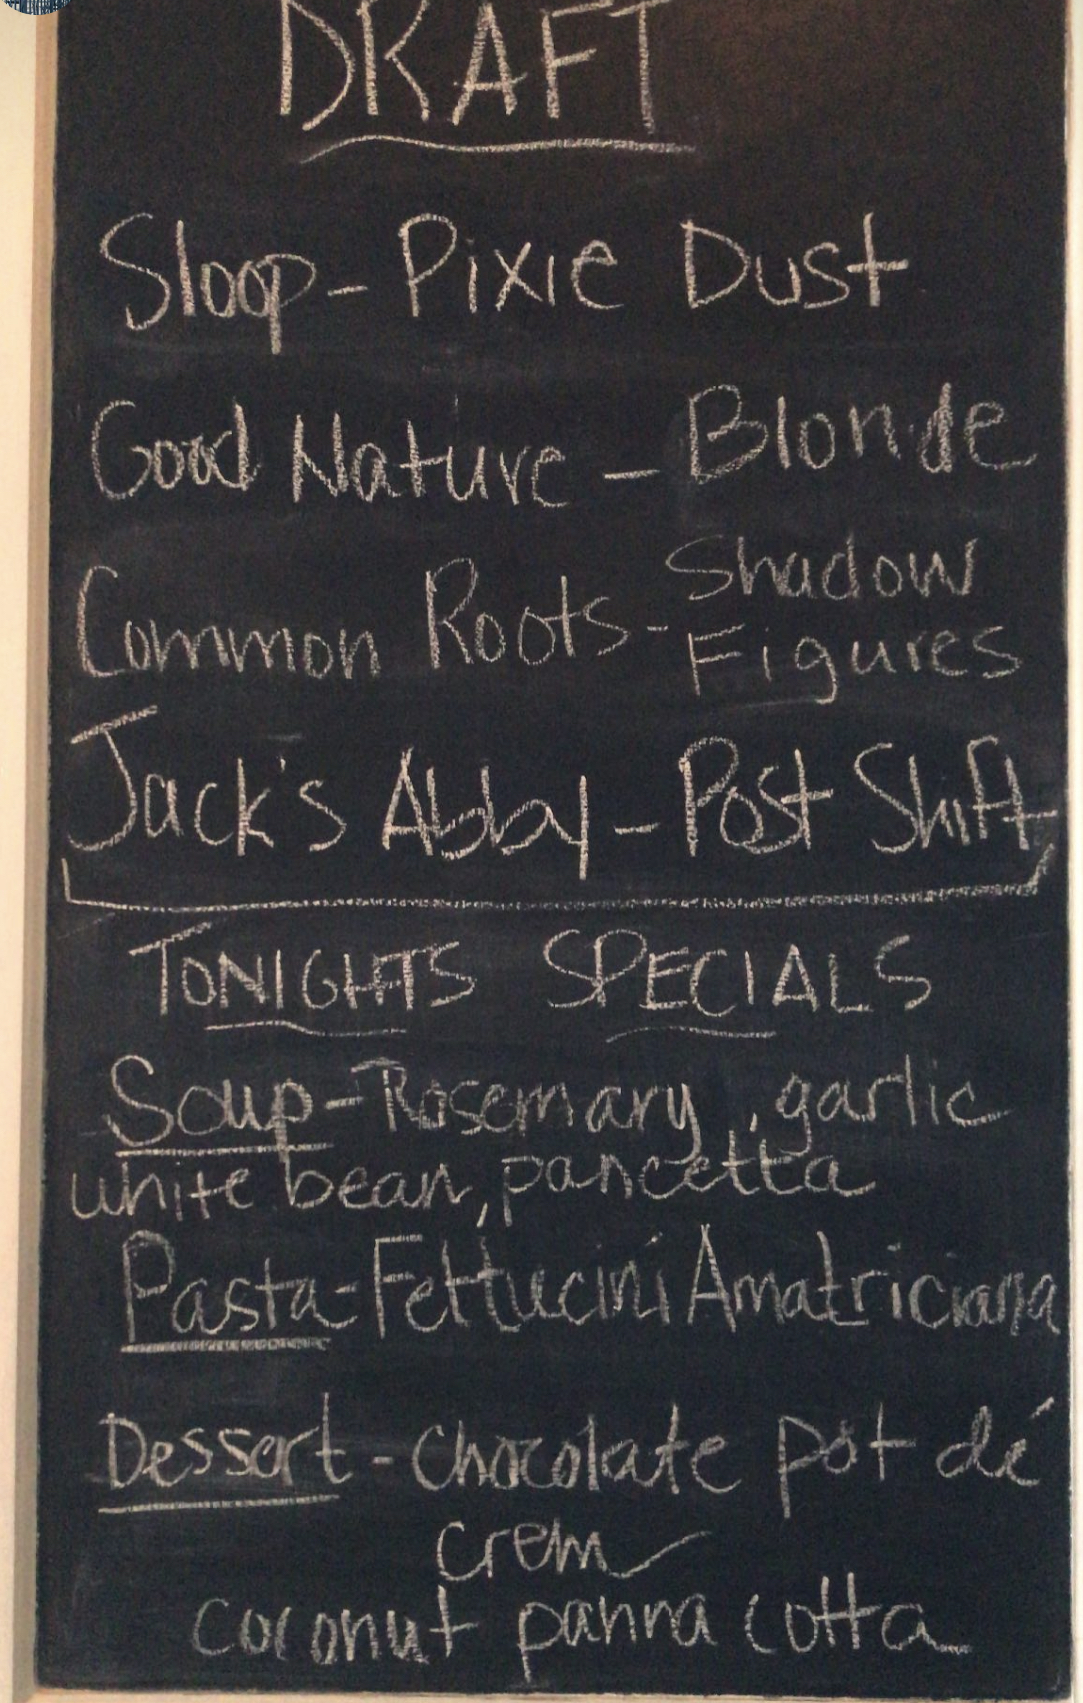 DRAFT
Sloop - Pixie Dust
Good Nature - Blonde
Common Roots - Shadow
Figures
Jack's Abby - Post Shift
TONIGHTS SPECIALS
Soup - Rosemary, garlic
white bean, pancetta
Pasta - Fettucini Amatriciana
Dessert - Chocolate pot dé
crem
coconut panna cotta